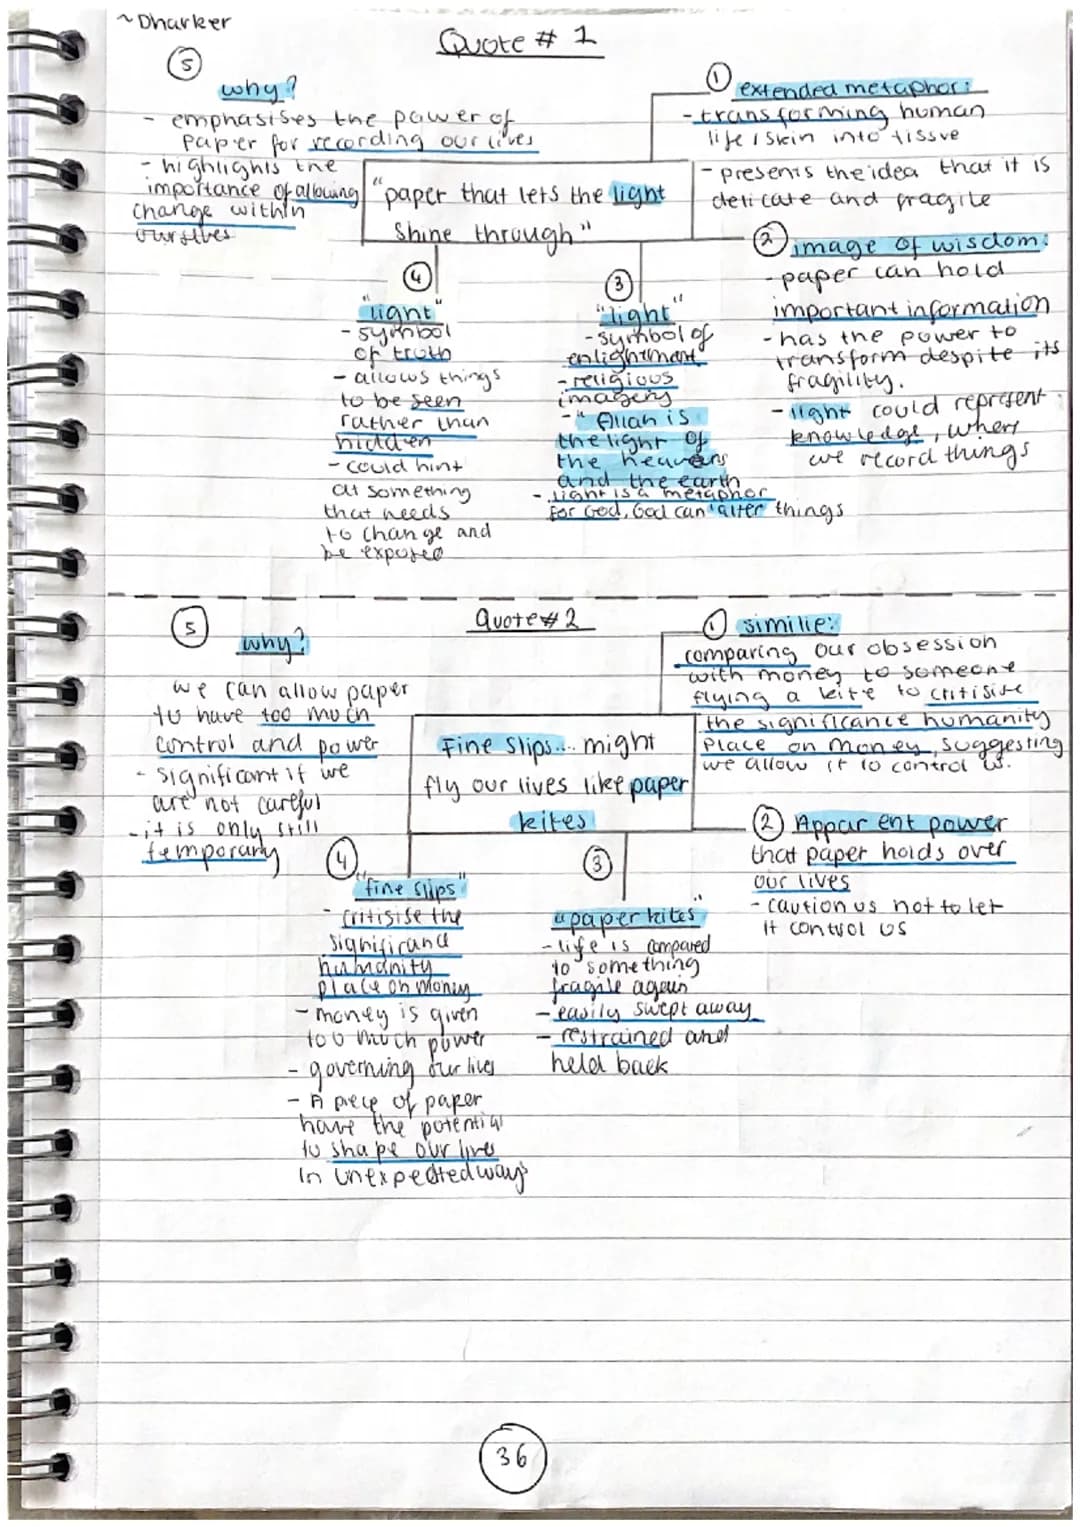 ~ Dharker
Quote # 1
5
why?
- emphasises the power of
paper for recording our lives
- highlights the
importance of allowing
change within
ourselves
"paper that lets the light
Shine through"
1 extended metaphor:
- transforming human
life / skin into tissue
- presents the idea that it is
delicate and fragile
2 image of wisdom:
- paper can hold
important information
- has the power to
transform despite its
fragility.
- light could represent
knowledge, where
we record things
3
"light"
- symbol of
enlightment
- religious
imagery
- " Allah is
the light of
the heavens
and the earth
- light is a metaphor
for God, God can alter things
4
"light"
- symbol
of truth
- allows things
to be seen
rather than
hidden
- could hint
at something
that needs
to change and
be exposed
Quote # 2
5
why?
we can allow paper
to have too much
control and power
- significant if we
are not careful
- it is only still
temporary
Fine Slips... might
fly our lives like paper
kites
1 similie:
comparing our obsession
with money to someone
flying a kite to critisise
the significance humanity
place on money, suggesting
we allow it to control us.
2 Apparent power
that paper holds over
our lives
- caution us not to let
it control us
3
"paper kites"
- life is compared
to something
fragile again
- easily swept away
- restrained and
held back
4
"fine slips"
- critisise the
significance
humanity
place on money
- money is given
too much power
- governing our lives
- A piece of paper
have the potential
to shape our lives
in unexpected ways
36